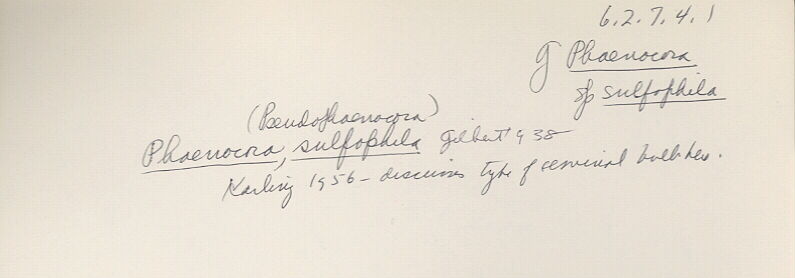 6.2.7.4.1
g Phaenocora
sp sulfophila
(Pseudophaenocora)
Phaenocora, sulfophila Gilbert 1938
Karling 1956 - discusses type of seminal bulb